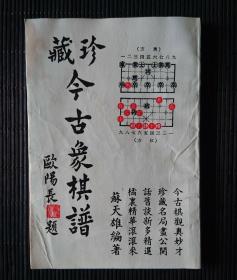 珍藏
今古象棋譜
歐陽長題
(方黑)
一二三四五六七八九
九八七六五四三二一
(方紅)
今古棋觀奧妙才
珍藏名局盡公開
話舊談新多精選
橘裏精華滾滾來
蘇天雄編著